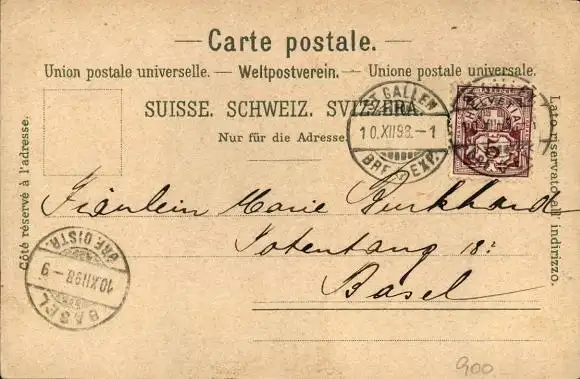 Carte postale.
Union postale universelle. — Weltpostverein. — Unione postale universale.
SUISSE. SCHWEIZ. SVIZZERA.
Nur für die Adresse.
Côté réservé à l'adresse.
Lato riservato all' indirizzo.
ST GALLEN
10.XII.98.-1
BRF. EXP.
HELVETIA
5
Fräulein Marie Burkhardt
Totentanz 18:
Basel
BRF. DISTR.
10.XII.98-9
BASEL
900